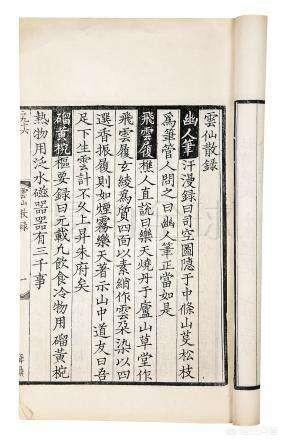 雲仙散錄
幽人筆 汗漫錄曰司空圖隱于中條山芟松枝
爲筆管人問之曰幽人筆正當如是
飛雲履 樵人直說曰樂天燒丹于廬山草堂作
飛雲履玄綾爲質四面以素綃作雲朶染以四
選香振履則如煙霧樂天著示山中道友曰吾
足下生雲計不久上昇朱府矣
磂黃椀 樞要錄曰元載九飲食冷物用磂黃椀
熱物用泛水磁器器有三千事
雲仙散錄
一